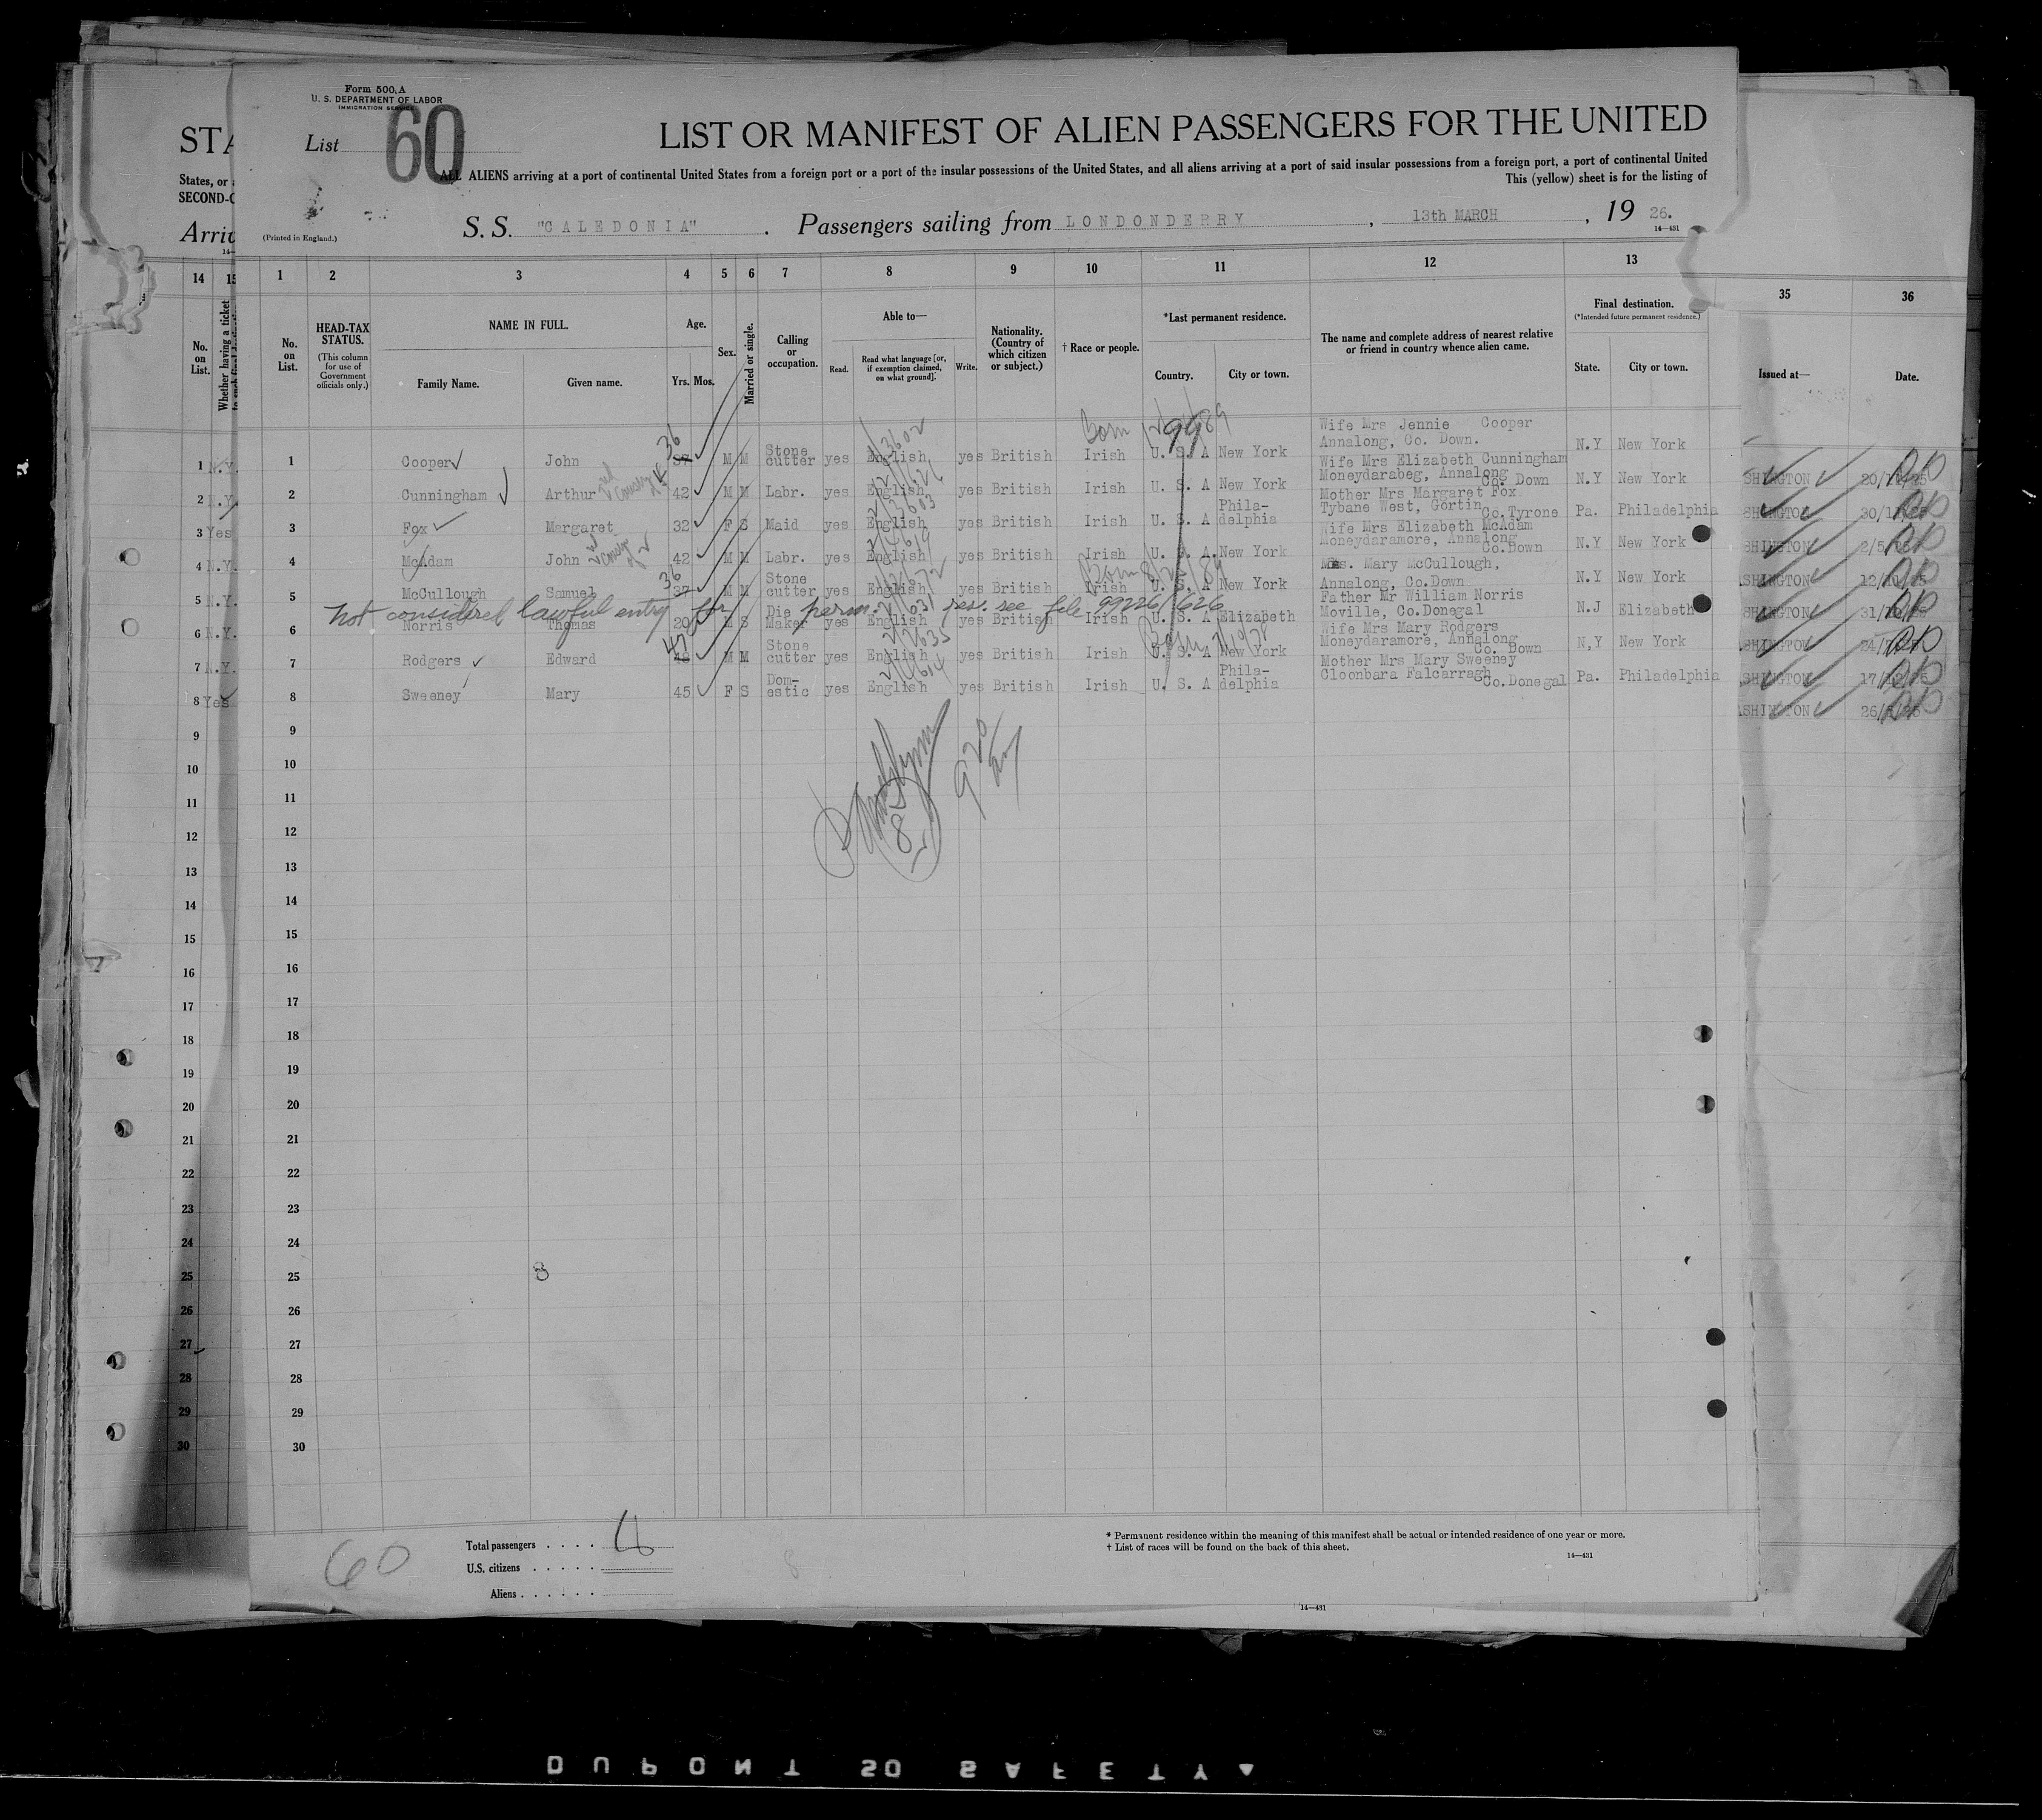 Form 500 A
U. S. DEPARTMENT OF LABOR
IMMIGRATION SERVICE
List 60
LIST OR MANIFEST OF ALIEN PASSENGERS FOR THE UNITED
ALL ALIENS arriving at a port of continental United States from a foreign port or a port of the insular possessions of the United States, and all aliens arriving at a port of said insular possessions from a foreign port, a port of continental United
This (yellow) sheet is for the listing of
STA
States, or
SECOND-C
Arric
(Printed in England.)
S. S. "CALEDONIA". Passengers sailing from LONDONDERRY, 13th MARCH, 19 26.
14—431
14 15 1 2 3 4 5 6 7 8 9 10 11 12 13 35 36
No. on List.
Whether having a ticket
No. on List.
HEAD-TAX STATUS.
(This column for use of Government officials only.)
NAME IN FULL.
Family Name. Given name.
Age.
Yrs. Mos.
Sex.
Married or single.
Calling or occupation.
Able to—
Read. Read what language [or, if exemption claimed, on what ground]. Write.
Nationality. (Country of which citizen or subject.)
† Race or people.
*Last permanent residence.
Country. City or town.
The name and complete address of nearest relative or friend in country whence alien came.
Final destination.
(*Intended future permanent residence.)
State. City or town.
Issued at— Date.
Born
1 N.Y. 1 Cooper John 37 36 M M Stone cutter yes English yes British Irish U. S. A New York Wife Mrs Jennie Cooper Annalong, Co. Down. N.Y New York
2 N.Y. 2 Cunningham Arthur 42 M M Labr. yes English yes British Irish U. S. A New York Wife Mrs Elizabeth Cunningham Moneydarabeg, Annalong Co. Down N.Y New York
3 Yes 3 Fox Margaret 32 F S Maid yes English yes British Irish U. S. A Phila- delphia Mother Mrs Margaret Fox Tybane West, Gortin Co. Tyrone Pa. Philadelphia
4 N.Y. 4 McAdam John 42 M M Labr. yes English yes British Irish U. S. A. New York Wife Mrs Elizabeth McAdam Moneydaramore, Annalong Co. Down N.Y New York
5 N.Y. 5 McCullough Samuel 37 36 M M Stone cutter yes English yes British Irish U. S. A New York Mrs. Mary McCullough, Annalong, Co.Down N.Y New York
not considered lawful entry for perm. res. see file 99226/626
6 N.Y. 6 Norris Thomas 20 M S Die Maker yes English yes British Irish U. S. A Elizabeth Father Mr William Norris Moville, Co.Donegal N.J Elizabeth
7 N.Y. 7 Rodgers Edward 48 47 M M Stone cutter yes English yes British Irish U. S. A New York Wife Mrs Mary Rodgers Moneydaramore, Annalong Co. Down N,Y New York
8 Yes 8 Sweeney Mary 45 F S Dom- estic yes English yes British Irish U. S. A Phila- delphia Mother Mrs Mary Sweeney Cloonbara Falcarragh Co.Donegal Pa. Philadelphia
SHINGTON
SHINGTON
SHINGTON
SHINGTON
SHINGTON
SHINGTON
SHINGTON
ASHINGTON
9 9
10 10
11 11
12 12
13 13
14 14
15 15
16 16
17 17
18 18
19 19
20 20
21 21
22 22
23 23
24 24
25 25
26 26
27 27
28 28
29 29
30 30
8
920
60
Total passengers
U.S. citizens
Aliens
* Permanent residence within the meaning of this manifest shall be actual or intended residence of one year or more.
† List of races will be found on the back of this sheet.
14—431
14—431
DUPONT 50 SAFETY